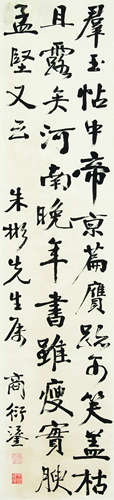 羣玉帖中帝京篇贋跡可笑蓋枯
且露矣河南晚年書雖瘦實腴
孟堅又云
朱彬先生屬 商衍鎏